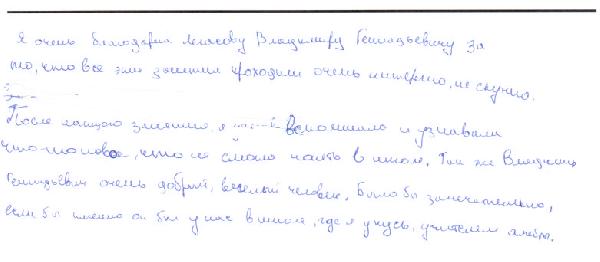 Я очень благодарна Власову Владимиру Геннадьевичу за
то, что все эти занятия проходили очень интересно, не скучно.
После каждого занятия, я вспоминала и узнавала
что-то новое, что не смогла понять в школе. Так же Владимир
Геннадьевич очень добрый, веселый человек. Было бы замечательно,
если бы именно он был у нас в школе, где я учусь, учителем алгебры.